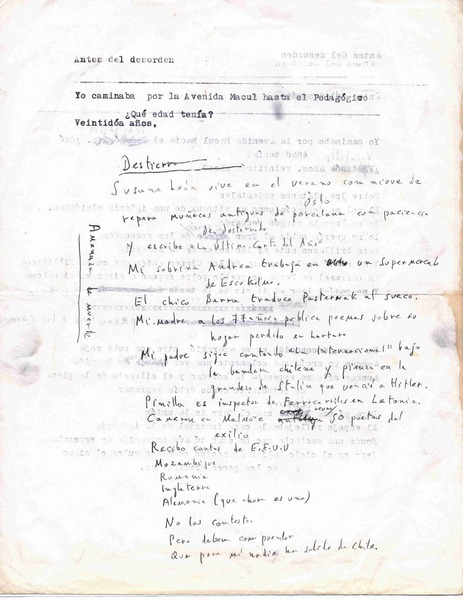 Antes del desorden
Yo caminaba por la Avenida Macul hasta el Pedagógico
¿Qué edad tenía?
Veintidós años.
Destierro
Susana León vive en el verano con nieve de
Oslo
repara muñecas antiguas de porcelana con paciencia
de desterrada
Y escribe una última carta del
Mi sobrina Andrea trabaja en un supermercado
de Estokolmo.
El chico Barra traduce Pasternak al sueco.
Mi madre a los 77 años publica poemas sobre su
hogar perdido en
Mi padre sigue cantando "La Internacional" bajo
la bandera chilena y piensa en la
grandeza de Stalin que venció a Hitler.
Pinilla es inspector de Ferrocarriles en
en 50 poetas del
exilio
Recibo cartas de E.E.U.U
Mozambique
Rumania
Inglaterra
Alemania (que ahora es una)
No las contesto.
Pero deben comprender
Que para mi nadie ha salido de Chile.
Amenaza de muerte